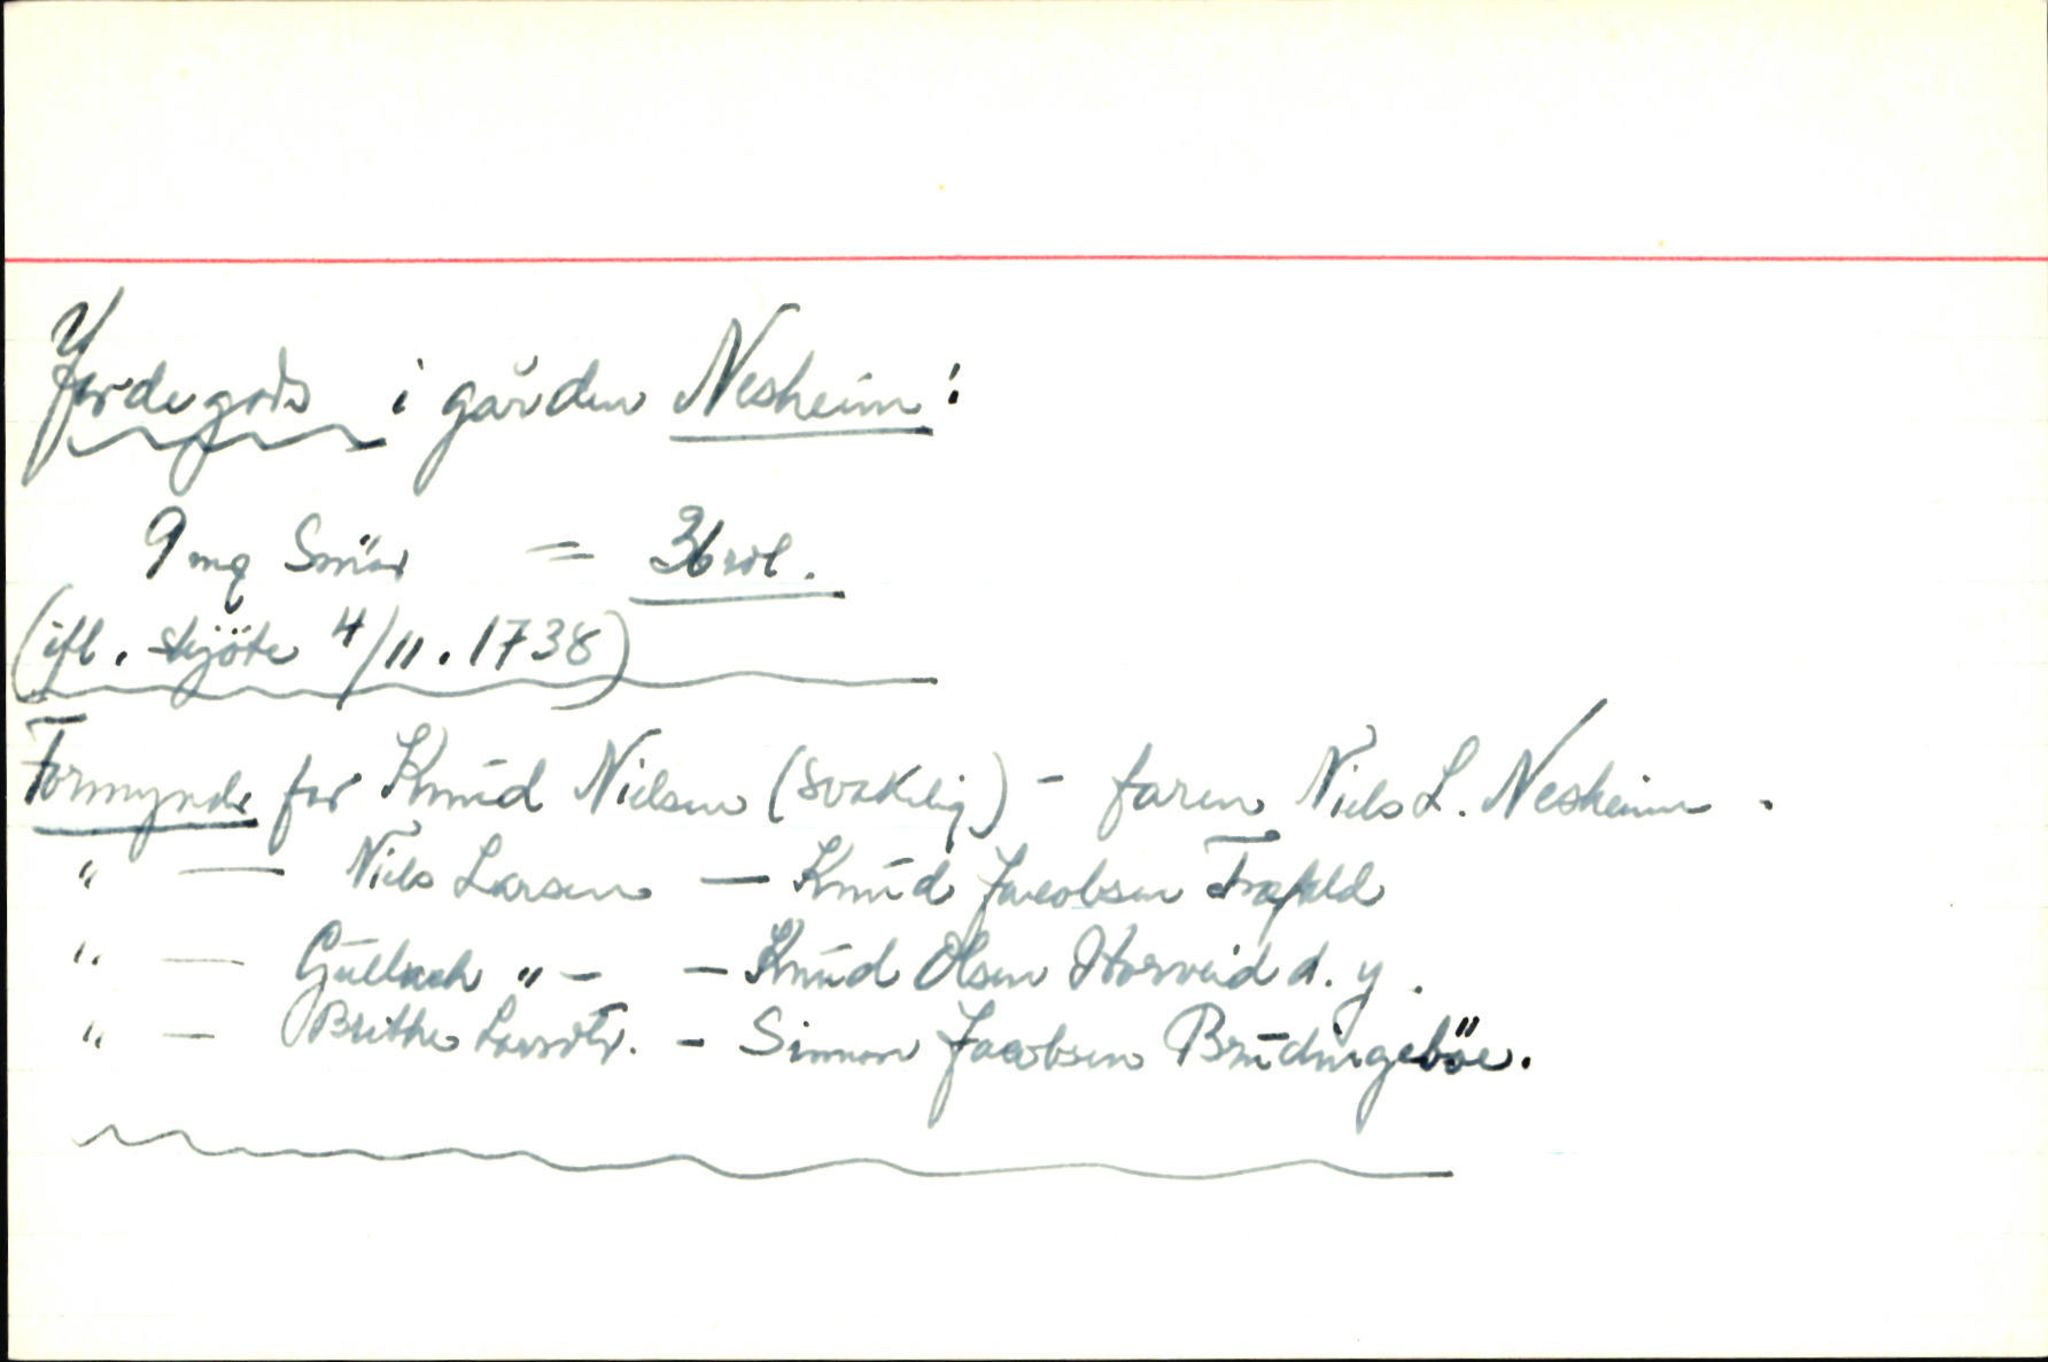 Jordegods i gården Nesheim:
9 mg Smör = 36 rdl.
(ifl. skjöte 4/11. 1738)
Formyndr for Knud Nielsen (svaklig) - faren Niels L. Nesheim.
" — Niels Larsen — Knud Jacobsen Træfald
" — Gullach " - — Knud Olsen Horveid d. y.
" — Brithe Larsdtr. - Simon Jacobsen Brudingeböe.